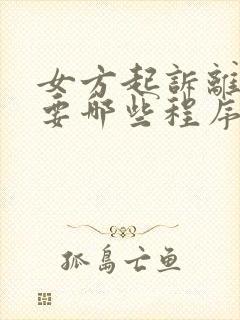 女方起訴離
要哪些程序
孤島亡鱼